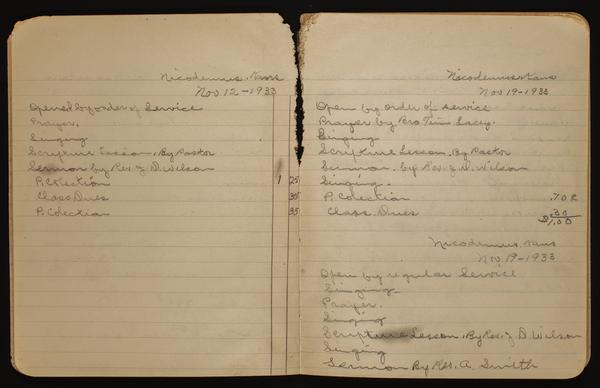 Nicodemus, Kans
Nov 12-1933
Opened by order of Service
Prayer.
Singing
Scripture Lesson, By Pastor
Sermon by Rev J. D. Wilson
P. Colection 1 25
Class Dues 30
P. Colection 35
Nicodemus Kans
Nov 19-1933
Open by order of service
Prayer by Bro Tim Lacey.
Singing
Scripture Lesson, By Pastor
Sermon. by Rev. J. D. Wilson
Singing.
P. Colection .70
Class. Dues .30
$1.00
Nicodemus, Kans
Nov. 19-1933
Open by regular Service
Singing
Prayer.
Singing
Scripture Lesson, By Rev. J. D. Wilson
Singing
Sermon By Rev. A. Smith